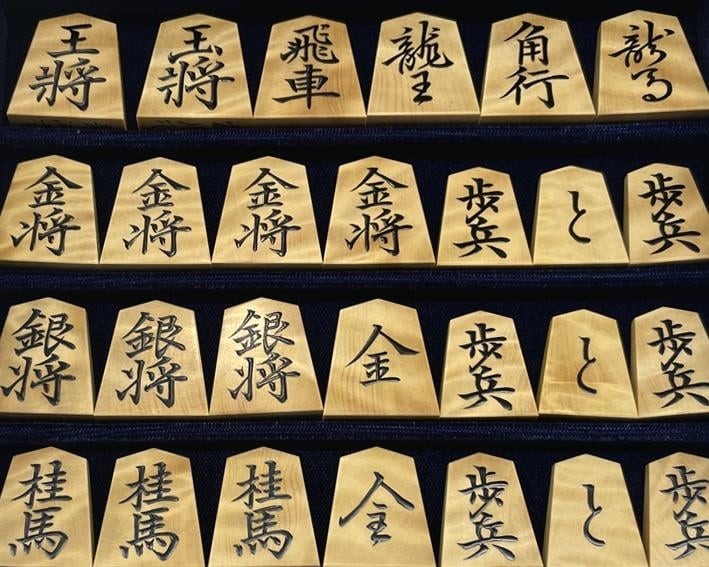 王將 玉將 飛車 龍王 角行 龍馬
金将 金将 金将 金将 歩兵 と 歩兵
銀将 銀将 銀将 金 歩兵 と 歩兵
桂馬 桂馬 桂馬 全 歩兵 と 歩兵